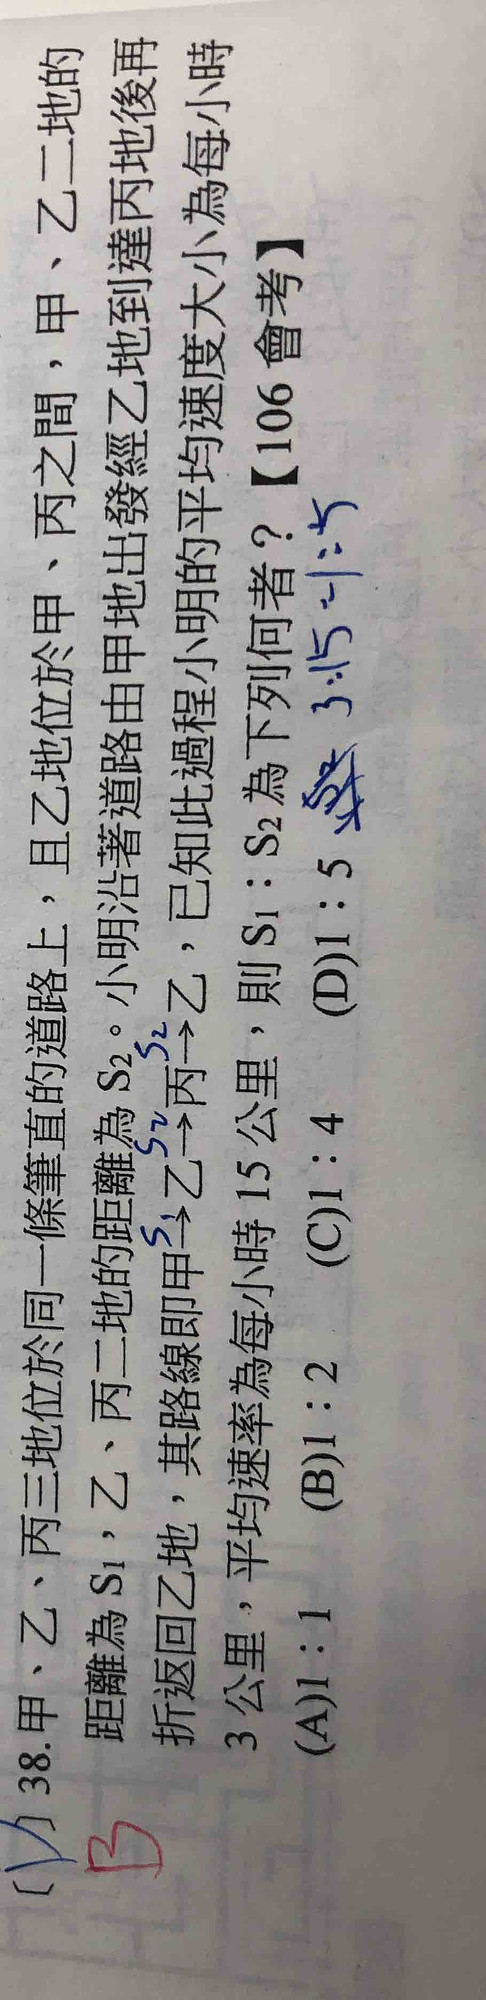 (D) 38.甲、乙、丙三地位於同一條筆直的道路上，且乙地位於甲、丙之間，甲、乙二地的
B
距離為 S1，乙、丙二地的距離為 S2。小明沿著道路由甲地出發經乙地到達丙地後再
S1 S2 S2
折返回乙地，其路線即甲→乙→丙→乙，已知此過程小明的平均速度大小為每小時
3 公里，平均速率為每小時 15 公里，則 S1：S2 為下列何者？【106 會考】
(A)1：1 (B)1：2 (C)1：4 (D)1：5 3:15=1:5